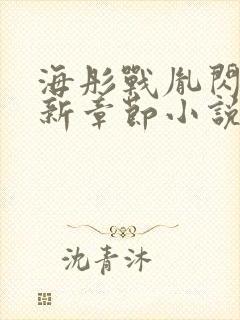 海彤戰胤閃
新章節小說
沈青沐